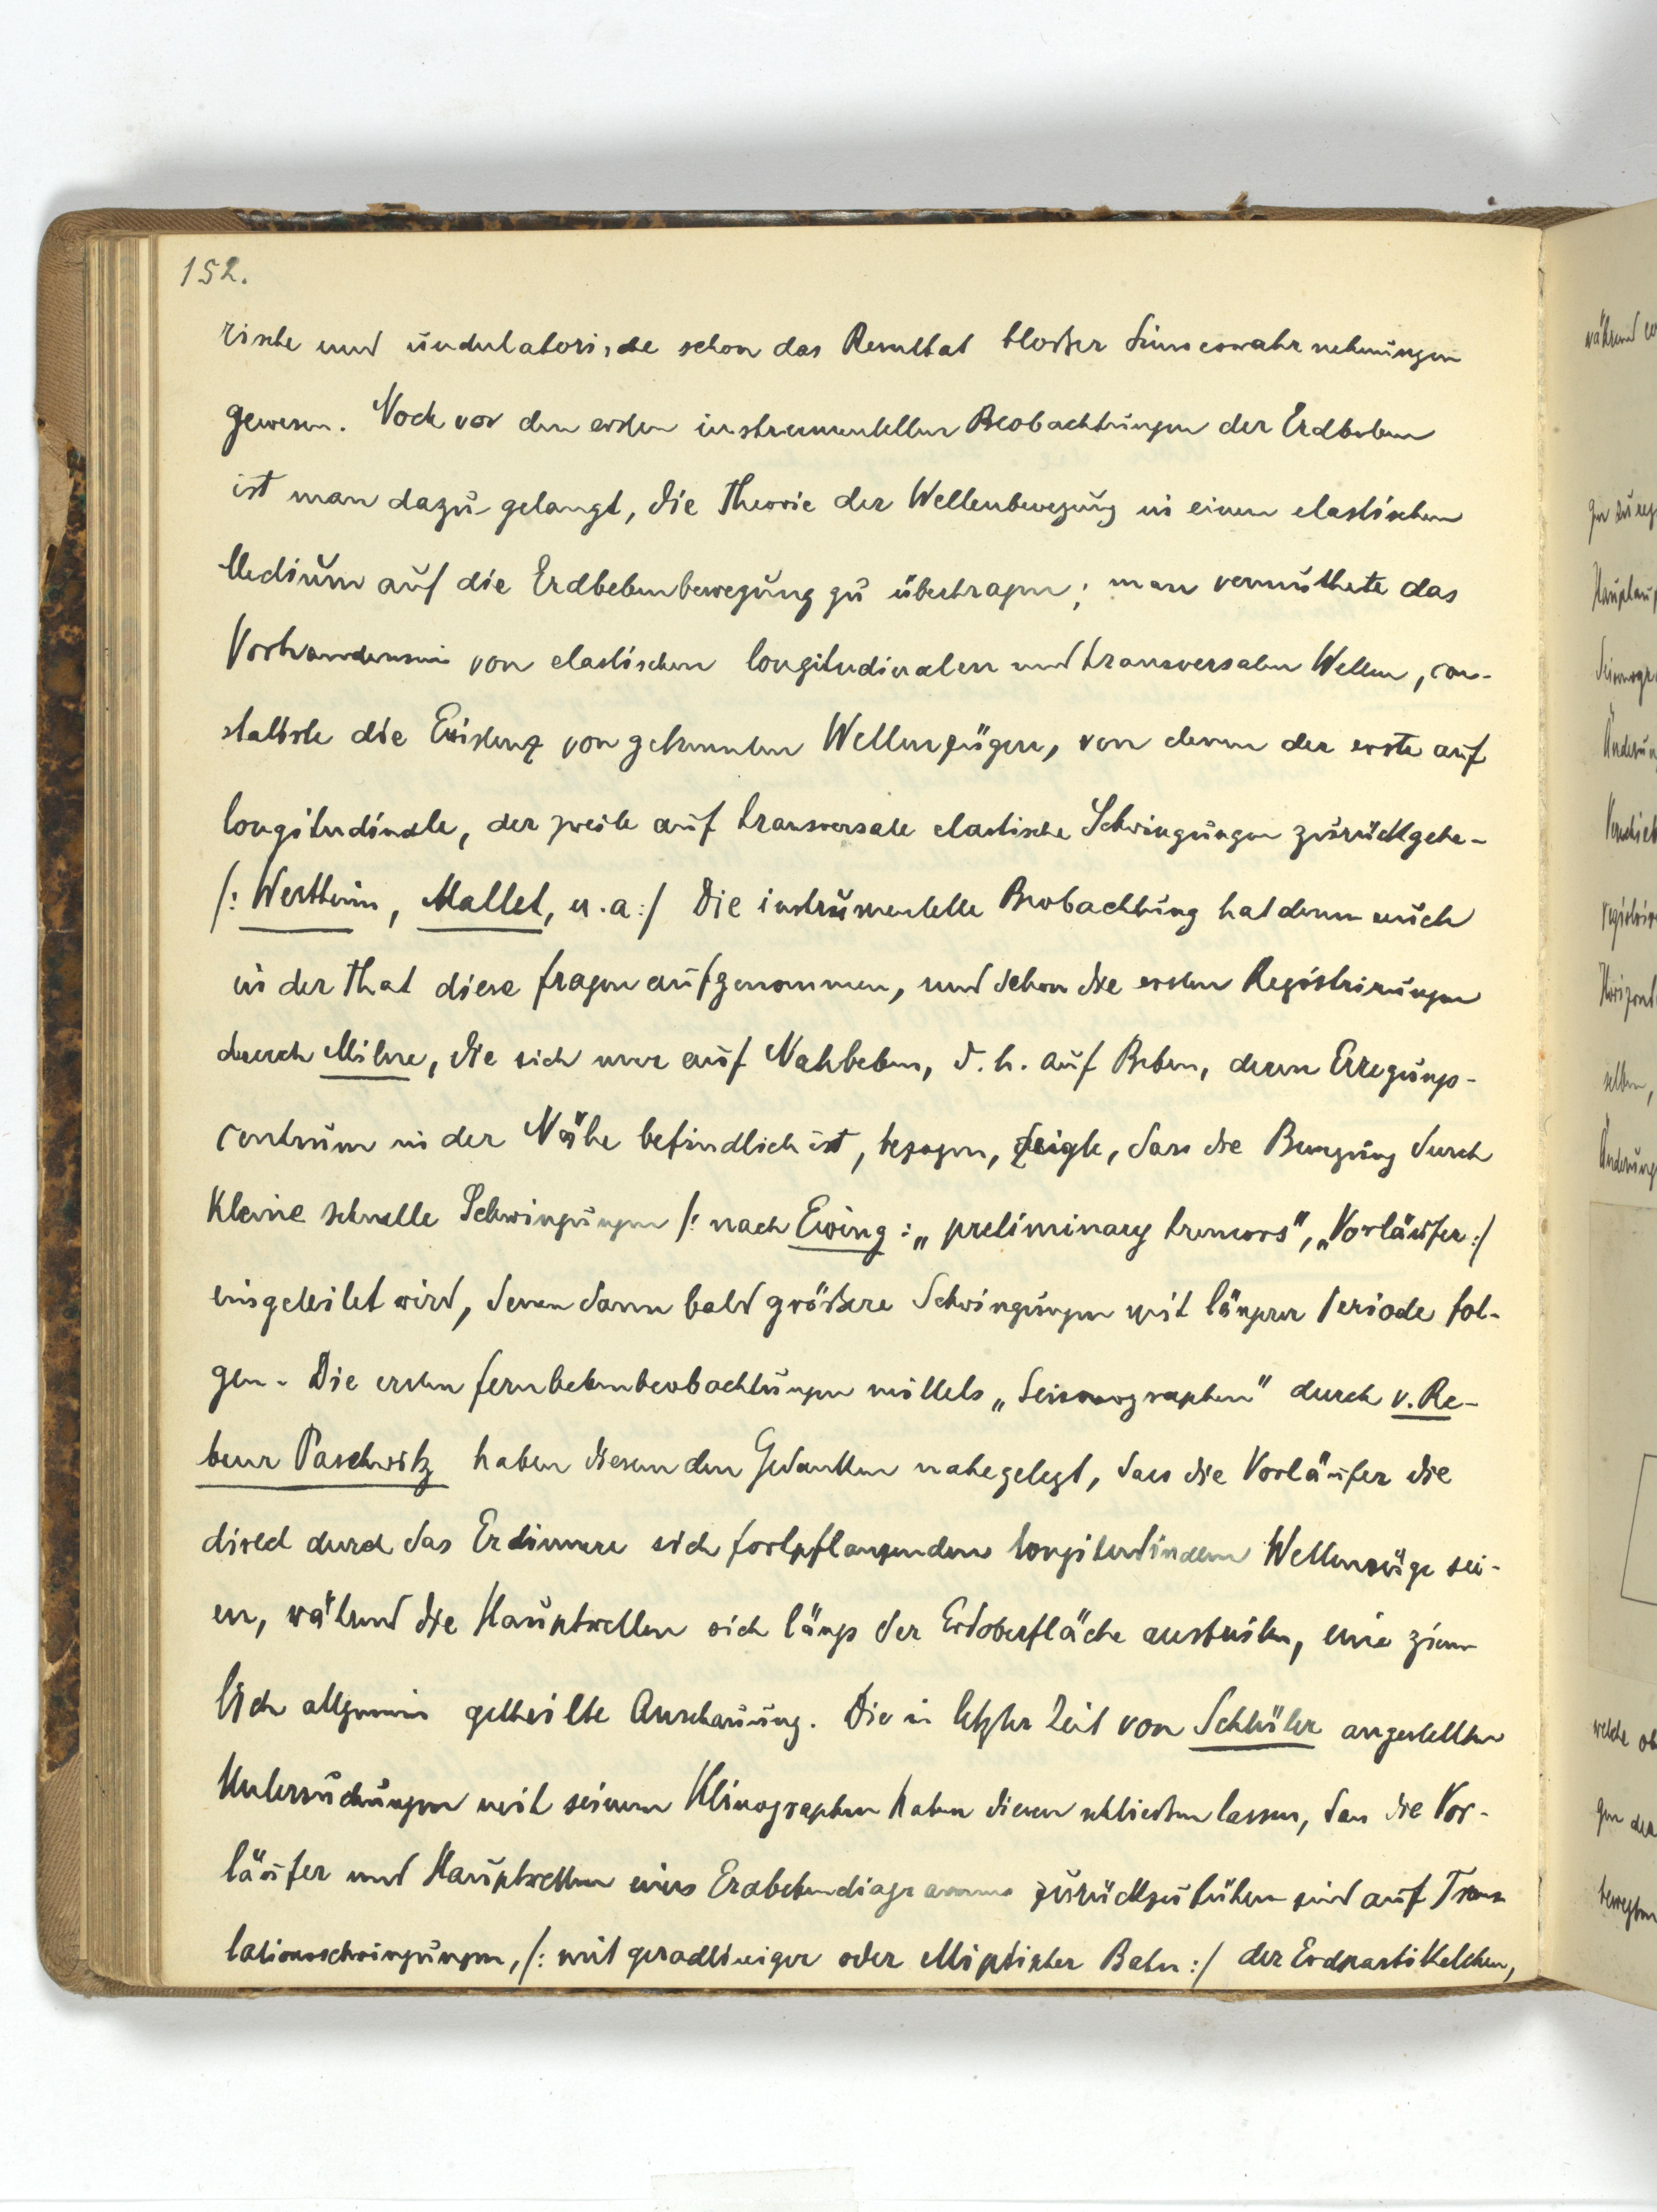 152.
rische und undulatorische schon das Resultat bloßer Sinneswahrnehmungen
gewesen. Noch vor den ersten instrumentellen Beobachtungen der Erdbeben
ist man dazu gelangt, die Theorie der Wellenbewegung in einem elastischen
Medium auf die Erdbebenbewegung zu übertragen; man vermuthete das
Vorhandensein von elastischen longitudinalen und transversalen Wellen, con-
statirte die Existenz von getrennten Wellenzügen, von denen der erste auf
longitudinale, der zweite auf transversale elastische Schwingungen zurückgehe-
/: Wertheim, Mallet, u. a :/ Die instrumentelle Beobachtung hat denn auch
in der That diese Fragen aufgenommen, und schon die ersten Registrirungen
durch Milne, die sich nur auf Nahbeben, d. h. auf Beben, deren Erregungs-
centrum in der Nähe befindlich ist, bezogen, zeigte, dass die Bewegung durch
kleine schnelle Schwingungen /: nach Ewing: „preliminary tremors", „Vorläufer :/
eingeleitet wird, denen dann bald größere Schwingungen mit längerer Periode fol-
gen. Die ersten Fernbebenbeobachtungen mittels „Seismographen" durch v. Re-
beur Paschwitz haben diesem den Gedanken nahegelegt, dass die Vorläufer die
direct durch das Erdinnere sich fortpflanzenden longitudinalen Wellenzüge sei-
en, während die Hauptwellen sich längs der Erdoberfläche ausbreiten, eine ziem-
lich allgemein getheilte Anschauung. Die in letzter Zeit von Schlüter angestellten
Untersuchungen mit seinem Klinographen haben diesen schließen lassen, dass die Vor-
läufer und Hauptwellen eines Erdbebendiagramms zurückzuführen sind auf Trans
lationsschwingungen, /: mit geradliniger oder elliptischer Bahn :/ der Erdpartikelchen,
während
Änderung
Horizont
selben,
Änderung
welche